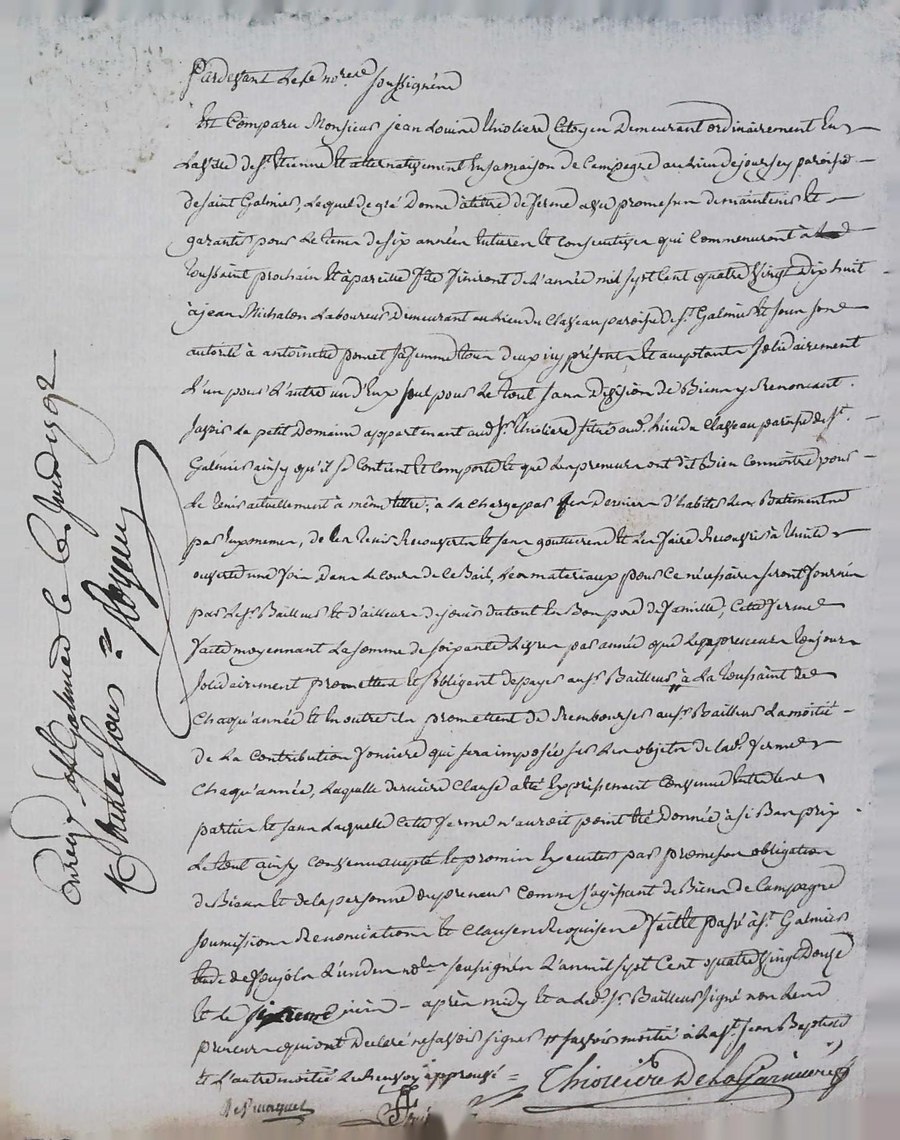 Pardevant Les nores soussignés
Est Comparu Monsieur jean Louis Thiolliere Citoyen Demeurant ordinairement En
La ville de st Etienne Et alternativement En sa maison de Campagne au Lieu de joursey paroisse
de saint Galmier, Lequel de gré Donne à titre de ferme avec promesse de maintenir Et
garantir pour Le tems de six années futures Et consecutives qui Commenceront à La
toussaint prochain Et à pareille fête finiront de L'année mil sept Cent quatre vingt dix huit
à jean Michalon Laboureur Demeurant au Lieu du Claveau paroisse de st Galmier Et sous son
autorité à antoinette ponet sa femme tous deux icy présents Et acceptants solidairement
L'un pour L'autre un d'Eux seul pour Le tout sans Division de Biens y Renonçant
savoir Le petit Domaine appartenant aud sr Thioliere situé aud. Lieu du Claveau paroisse de st
Galmier ainsy qu'il se Contient Et Comporte Et que Les preneurs ont dit Bien Connoitre pour
Le tenir actuellement à même titre; à la Charge par Ces Derniers d'habiter Les Batiments
par Eux mêmes, de Les tenir Recouverts Et sans gouttieres Et Les faire Recouvrir à Thuile
ouverte une fois dans Le cours de Ce Bail, Les materiaux pour Ce nécessaire seront fournis
par Le sr Bailleur Et d'ailleurs de jouir du tout En Bon pere de famille, Cette ferme
faite moyennant La somme de soixante Livres par année que Les preneurs toujours
solidairement promettent Et s'obligent de payer au sr Bailleur # à La toussaint de
Chaqu'année Et En outre ils promettent De Rembourser au sr Bailleur La moitié
de La Contribution fonciere qui sera imposée sur Les objets de lad. ferme
Chaqu'année, Laquelle derniere Clause a été Expressement Convenue Entre Les
parties Et sans Laquelle Cette ferme n'auroit point été Donnée à si Bas prix
Le tout ainsy Convenu accepté Et promis Executer par promesses obligation
de Biens Et de la personne des preneurs Comme s'agissant de Biens de Campagne
soumissions Renonciations Et Clauses Requises fait Et passé à st Galmier
Etude de soujols L'un des nores soussignés L'an mil sept Cent quatre vingt Douze
Et Le six juin après midy Et a Led. sr Bailleur signé non Les
preneurs qui ont Declaré ne savoir signer # savoir moitié à La st jean Baptiste
Et L'autre moitié Le Renvoy approuvé =
Thiolliere De la Garinière
Enreg. à st Galmier le 6 juin 1792
R trente sous = Royeau